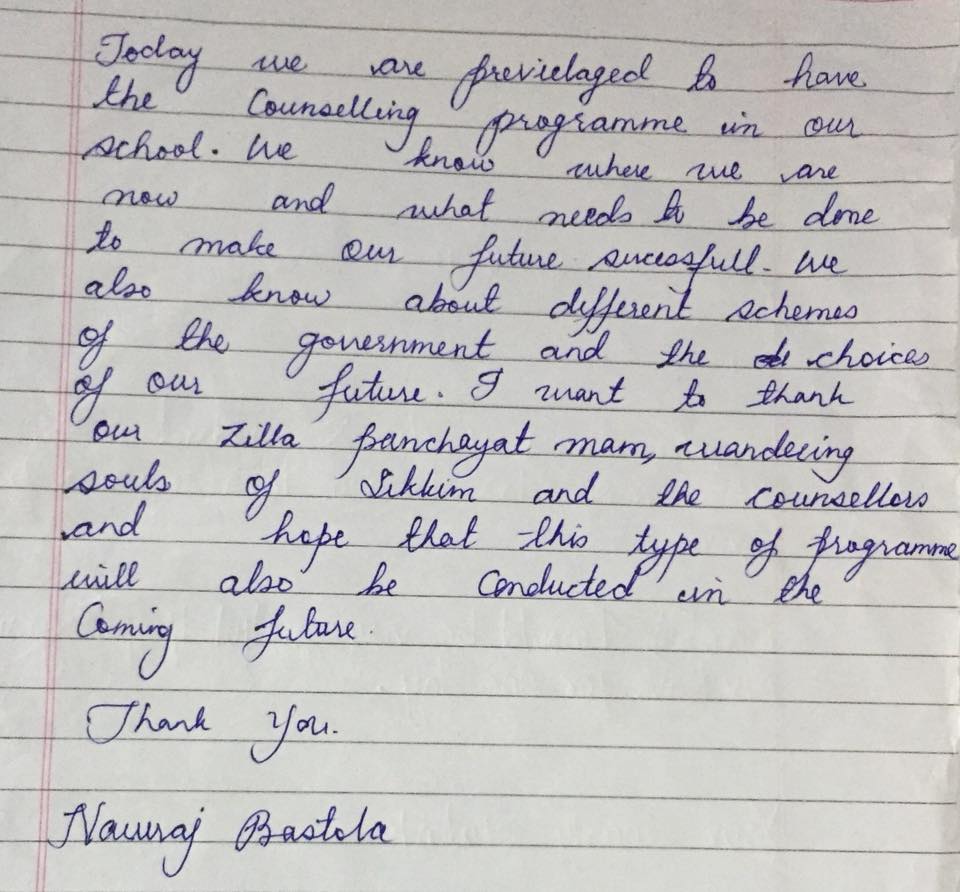 Today we are previelaged to have
the Counselling programme in our
school. We know where we are
now and what needs to be done
to make our future sucessfull. We
also know about different schemes
of the government and the choices
of our future. I want to thank
our Zilla panchayat mam, wandering
souls of Sikkim and the counsellors
and hope that this type of programme
will also be Conducted in the
Coming future.
Thank You.
Nawraj Bastola